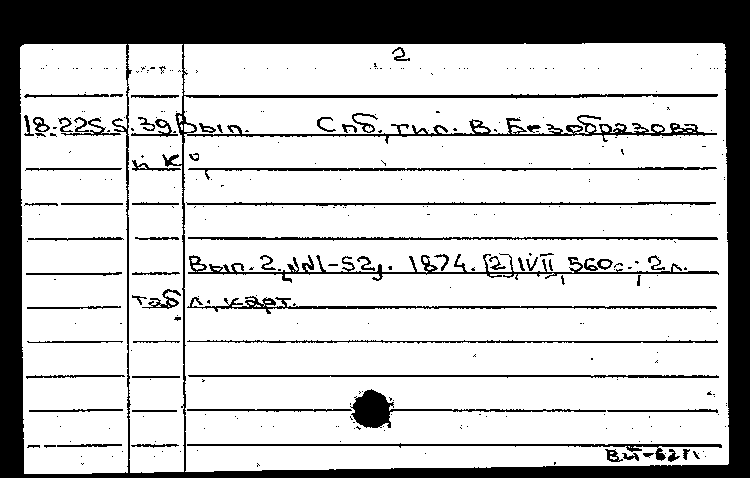 2
18.225.5.39 Вып. Спб, тип. В. Безобразова
и К°,
Вып. 2, NN1-52,. 1874. [2] IVII, 560с.; 2л.
табл., карт.